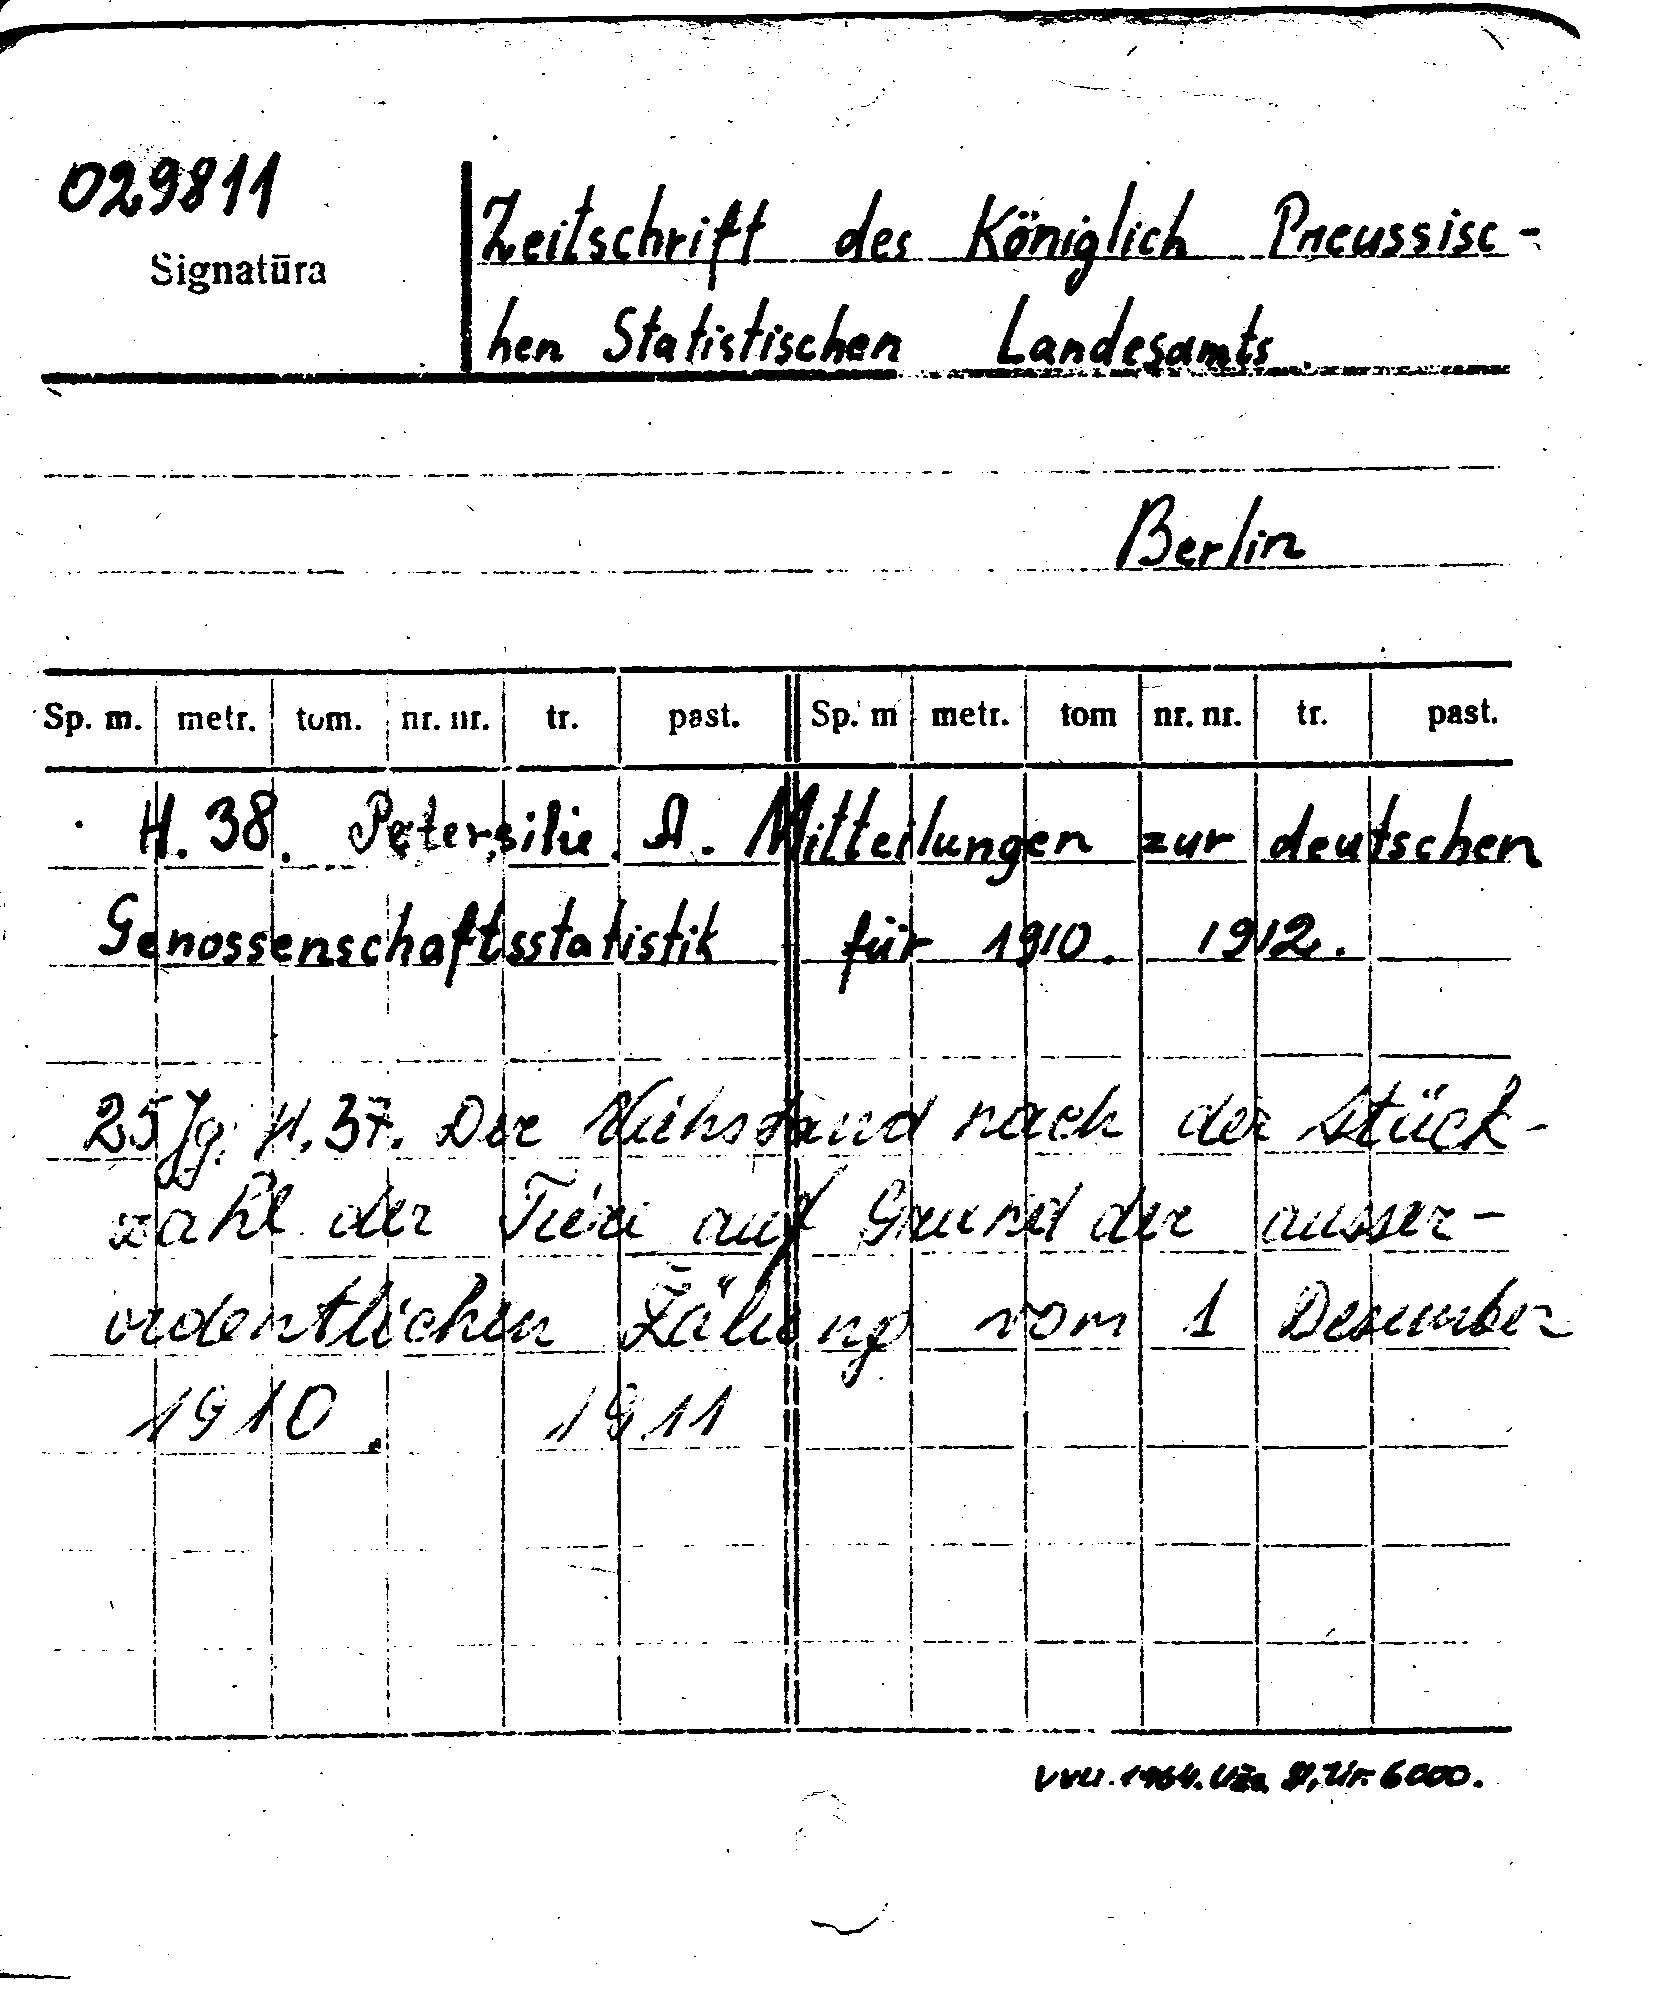 029811
Signatūra
Zeitschrift des Königlich Preussisc-
hen Statistischen Landesamts
Berlin
Sp. m. metr. tom. nr. nr. tr. past. Sp. m metr. tom nr. nr. tr. past.
H. 38. Petersilie. A. Mitteilungen zur deutschen
Genossenschaftsstatistik für 1910. 1912.
25 Jg. H. 37. Der Viehstand nach der Stück-
zahl der Tiere auf Grund der ausser-
ordentlichen Zählung vom 1 Desember
1910. 1911
VVU. 1964. Užs. 6000.